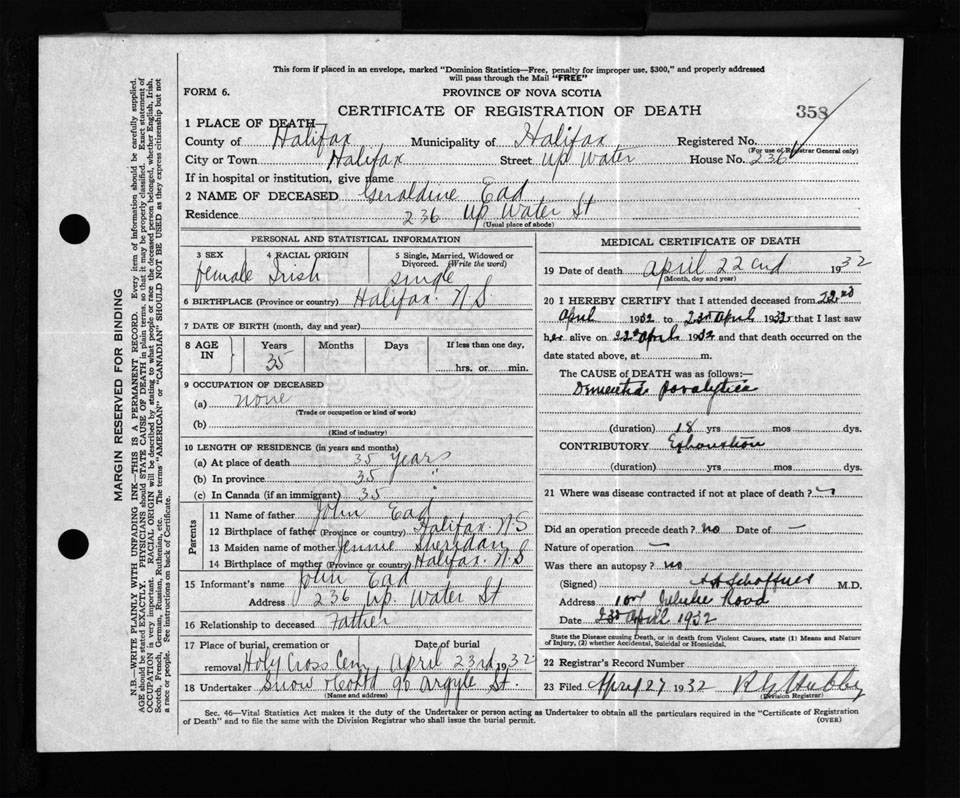 This form if placed in an envelope, marked "Dominion Statistics—Free, penalty for improper use, $300," and properly addressed
will pass through the Mail "FREE"
FORM 6.
PROVINCE OF NOVA SCOTIA
CERTIFICATE OF REGISTRATION OF DEATH
358
1 PLACE OF DEATH—
County of Halifax Municipality of Halifax Registered No.
(For use of Registrar General only)
City or Town Halifax Street Up Water House No. 236
If in hospital or institution, give name
2 NAME OF DECEASED Geraldine Ead
Residence 236 Up Water St
(Usual place of abode)
PERSONAL AND STATISTICAL INFORMATION
3 SEX 4 RACIAL ORIGIN 5 Single, Married, Widowed or Divorced. (Write the word)
female Irish Single
6 BIRTHPLACE (Province or country) Halifax. N.S.
7 DATE OF BIRTH (month, day and year)
8 AGE IN Years Months Days If less than one day,
35 hrs. or min.
9 OCCUPATION OF DECEASED
(a) none
(Trade or occupation or kind of work)
(b)
(Kind of industry)
10 LENGTH OF RESIDENCE (in years and months)
(a) At place of death 35 years
(b) In province 35 "
(c) In Canada (if an immigrant) 35
Parents
11 Name of father John Ead
12 Birthplace of father (Province or country) Halifax. N.S
13 Maiden name of mother Jennie Sheridan
14 Birthplace of mother (Province or country) Halifax. N.S
15 Informant's name John Ead
Address 236 Up. Water St
16 Relationship to deceased Father
17 Place of burial, cremation or removal Holy Cross Cem Date of burial April 23rd 1932
18 Undertaker Snow & Co Ltd 90 Argyle St.
(Name and address)
MEDICAL CERTIFICATE OF DEATH
19 Date of death April 22nd 1932
(Month, day and year)
20 I HEREBY CERTIFY that I attended deceased from 22nd
April 1932 to 23rd April 1932 that I last saw
her alive on 22nd April 1932 and that death occurred on the
date stated above, at m.
The CAUSE OF DEATH was as follows:—
Dementia paralytica
(duration) 18 yrs mos dys.
CONTRIBUTORY Exhaustion
(duration) yrs mos dys.
21 Where was disease contracted if not at place of death? —
Did an operation precede death? no Date of —
Nature of operation —
Was there an autopsy? no
(Signed) M.D.
Address Road
Date 23rd April 1932
State the Disease causing Death, or in death from Violent Causes, state (1) Means and Nature
of Injury, (2) whether Accidental, Suicidal or Homicidal.
22 Registrar's Record Number
23 Filed April 27 1932
(Division Registrar)
Sec. 46—Vital Statistics Act makes it the duty of the Undertaker or person acting as Undertaker to obtain all the particulars required in the "Certificate of Registration
of Death" and to file the same with the Division Registrar who shall issue the burial permit.
(OVER)
MARGIN RESERVED FOR BINDING
N.B.—WRITE PLAINLY WITH UNFADING INK—THIS IS A PERMANENT RECORD. Every item of information should be carefully supplied.
AGE should be stated EXACTLY. PHYSICIANS should STATE CAUSE OF DEATH in plain terms so that it may be properly classified. Exact statement of
OCCUPATION is very important. RACIAL ORIGIN will be described by stating to what people or race the deceased person belonged, whether English, Irish,
Scotch, French, German, Russian, Ruthenian, etc. The terms "AMERICAN" or "CANADIAN" SHOULD NOT BE USED as they express citizenship but not
a race or people. See instructions on back of Certificate.